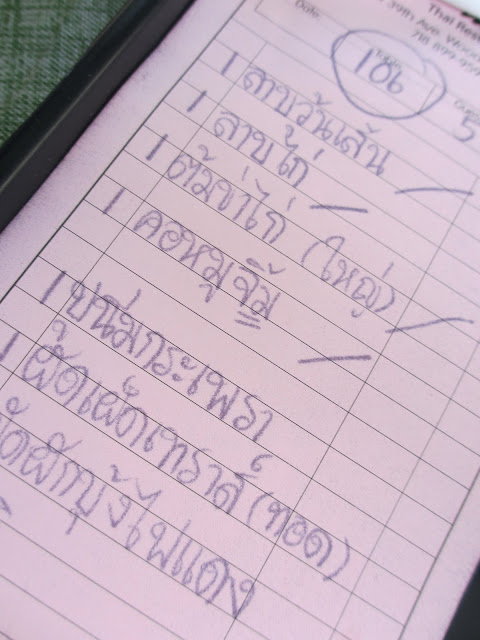 Thai
39th Ave.
718 899-959
Date
106
5
1 ลาบวุ้นเส้น
1 ลาบไก่
1 ต้มข่าไก่ (ใหญ่)
1 คอหมูจิ้ม
1 ปูนิ่มกระเพรา
1 ผัดเผ็ดเทราต์ (ทอด)
ผัดผักบุ้งไฟแดง